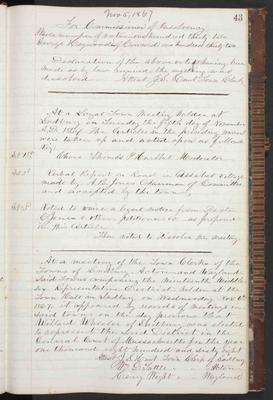 Nov 5, 1867
43
For Commissioner of Insolvency
Whole number of votes one hundred thirty two
George Heywood of Concord one hundred thirty two
Declaration of the above vote having been
made as by law required the meeting was
dissolved. Attest J.S. Hunt Town Clerk
At a Legal Town Meeting holden at
Sudbury on Tuesday the fifth day of November
A.D. 1867. The Articles in the preceding warrant
were taken up and acted upon as follows
viz
Art 1st Chose Thomas P. Moderator
Art 2d Verbal Report on Road in Assabet Village
made by A.B. Jones Chairman of Committee
and accepted by the town.
Art 3d Voted to a legal notice from
Jones & others petitioners as proposed
in this Article.
Then voted to dissolve the meeting
At a meeting of the Town Clerks of the
Towns of Sudbury, Acton and Wayland
Said Towns composing the Nineteenth Middle
sex Representative District holden at the
Town Hall in Sudbury on Wednesday Nov 6th
1867. It appeared by records of meetings in
said towns on the day previous that
Willard Wheeler of Sudbury was elected
to represent the said District in the
General Court of Massachusetts for the year
one thousand eight hundred and sixty eight
Attest J.S. Hunt Town Clerk of Sudbury
Wm D. Tuttle Acton
Henry Wight Wayland